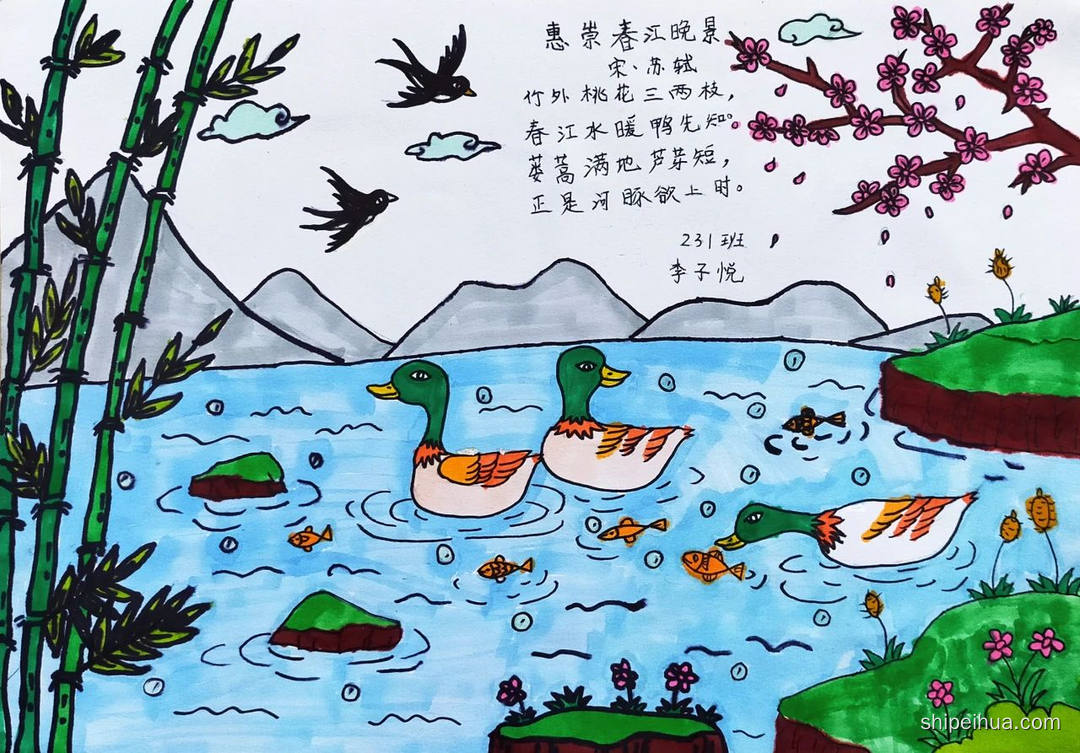 惠崇春江晚景
宋、苏轼
竹外桃花三两枝，
春江水暖鸭先知。
蒌蒿满地芦芽短，
正是河豚欲上时。
231班
李子悦
shipeihua.com